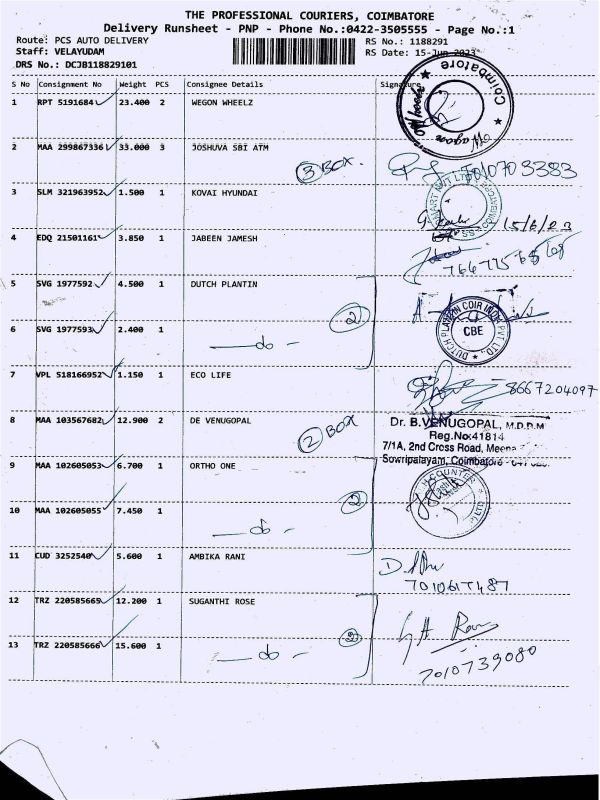 THE PROFESSIONAL COURIERS, COIMBATORE
Delivery Runsheet - PNP - Phone No.:0422-3505555 - Page No.:1
Route: PCS AUTO DELIVERY
RS No.: 1188291
Staff: VELAYUDAM
RS Date: 15-Jun-2023
DRS No.: DCJB118829101
S No Consignment No Weight PCS Consignee Details Signature
1 RPT 5191684 23.400 2 WEGON WHEELZ
Wagon Wheelz Coimbatore
2 MAA 299867336 33.000 3 JOSHUVA SBI ATM
3 BOX.
3 SLM 321963952 1.500 1 KOVAI HYUNDAI
15/6/23
4 EDQ 21501161 3.850 1 JABEEN JAMESH
5 SVG 1977592 4.500 1 DUTCH PLANTIN
2
6 SVG 1977593 2.400 1 —do—
DUTCH PLANTIN COIR INDIA PVT LTD.
CBE
7 VPL 518166952 1.150 1 ECO LIFE
8667204097
8 MAA 103567682 12.900 2 DE VENUGOPAL
2 BOX
Dr. B.VENUGOPAL, M.D.R.M
Reg.No:41814
7/1A, 2nd Cross Road, Meena
Sowripalayam, Coimbatore -
9 MAA 102605053 6.700 1 ORTHO ONE
2
10 MAA 102605055 7.450 1 —do—
11 CUD 3252540 5.600 1 AMBIKA RANI
7010617487
12 TRZ 220585665 12.200 1 SUGANTHI ROSE
2
13 TRZ 220585666 15.600 1 —do—
7010739080